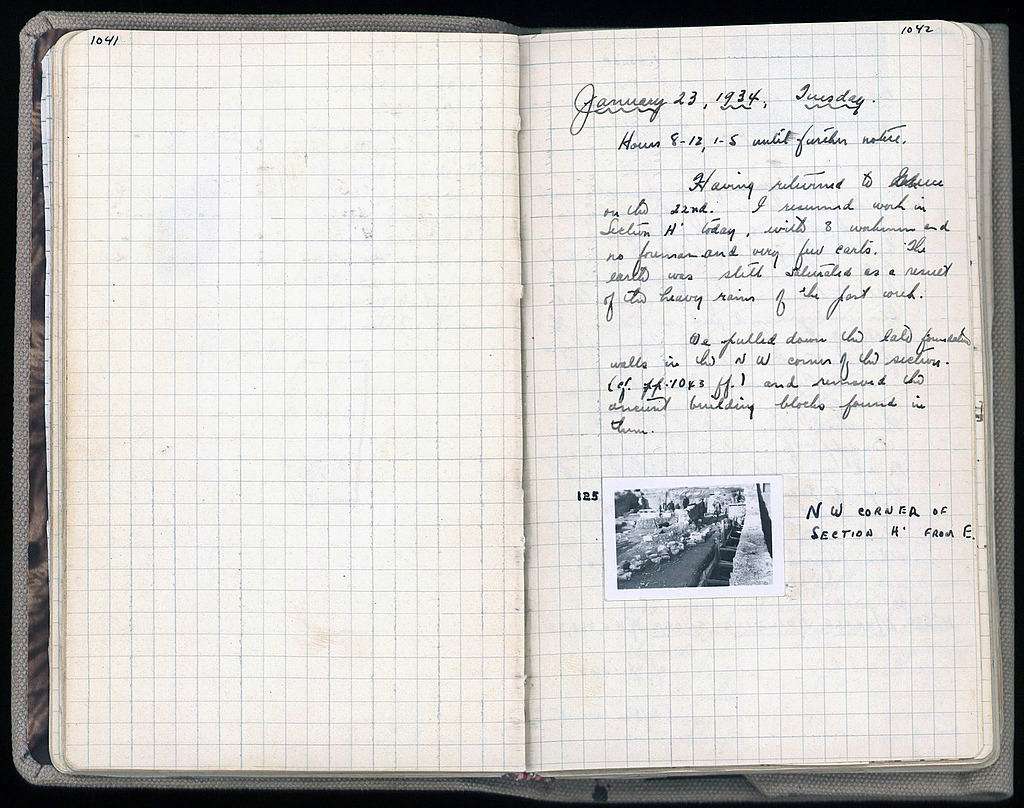 1041
1042
January 23, 1934, Tuesday.
Hours 8-12, 1-5 until further notice.
Having returned to
on the 22nd. I resumed work in
Section H' today, with 8 workmen and
no foreman and very few carts. The
earth was still saturated as a result
of the heavy rains of the past week.
We pulled down the late foundation
walls in the N W corner of the section.
(cf. pp. 1043 ff.) and removed the
ancient building blocks found in
them.
125
N W CORNER OF
SECTION H' FROM E.